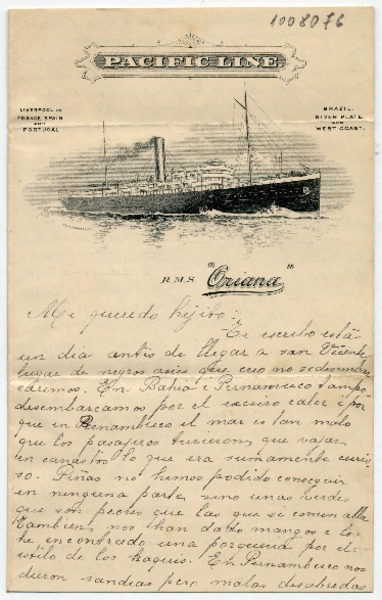 1008076
PACIFIC LINE
LIVERPOOL TO
FRANCE SPAIN
AND
PORTUGAL
BRAZIL
RIVER PLATE
AND
WEST COAST.
R.M.S. "Oriana"
Me querido hijito:
Te escribo está
un dia antis de llegar a san Vicente
lugar de negros asies que creo no se desembar
caremos. En Bahia i Pernamvuco tampo
desembarcamos por el exesivo calor i por
que en Pernambuco il mar es tan malo
que los pasajeros tuvieron que vajar
en canastos lo que era sumamente curio
so. Piñas no hemos podido conseguir
en ninguna parte sino unas verdes
que son peores que las que si comen alla
tambien nos han dado mangos i los
he encontrado una porqueria por el
estilo de los kaquis. En Pernambuco nos
dieron sandias pero malas desabredas